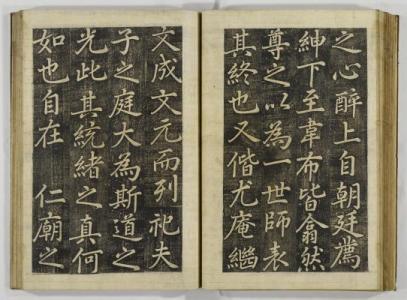 之心醉上自朝廷薦
紳下至韋布皆翕然
尊之以為一世師表
其終也又偕尤庵繼
文成文元而列祀夫
子之庭大為斯道之
光此其統緒之真何
如也自在 仁廟之